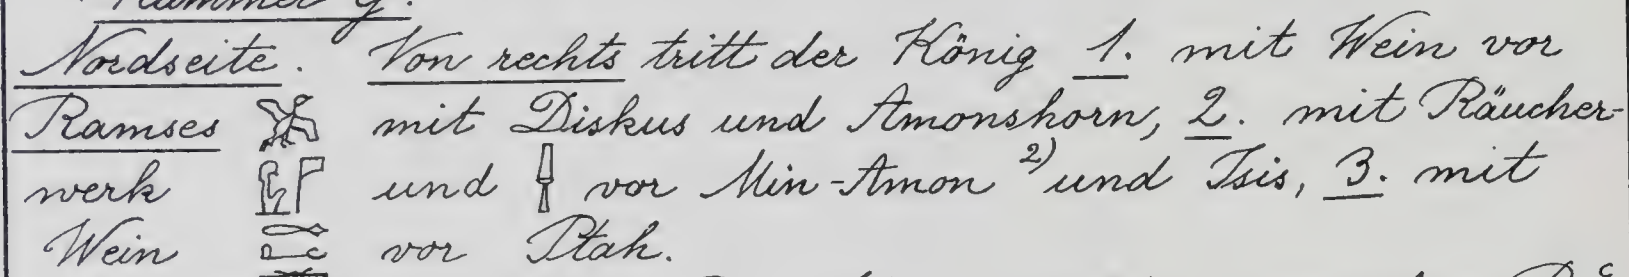 Kammer g.
Nordseite. Von rechts tritt der König 1. mit Wein vor
Ramses mit Diskus und Amonshorn, 2. mit Räucher-
werk und vor Min-Amon 2) und Isis, 3. mit
Wein vor Ptah.